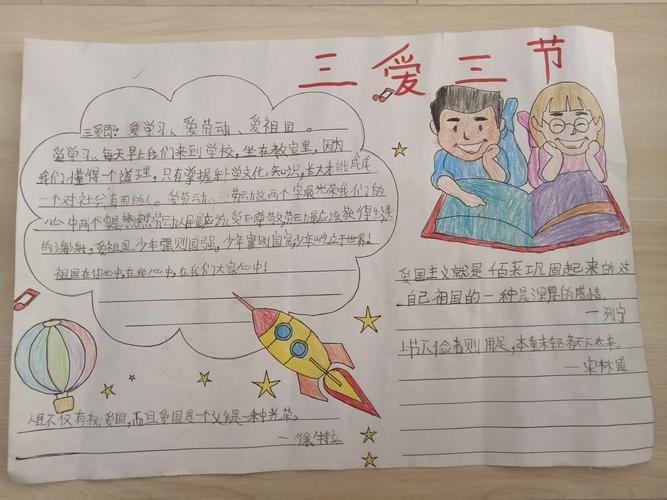 三爱三节
三爱即：爱学习、爱劳动、爱祖国。
爱学习、每天早上我们来到学校，坐在教室里，因为
我们懂得一个道理，只有掌握科学文化知识，长大才能成成
一个对社会有用的人。爱劳动、劳动这两个字最光荣我们的
心中两个字
的谢谢，爱祖国、少年强则国强，少年富则国富，少年屹立于世界！
祖国在你心中，在我心中，在我们大家心中！
爱国主义就是千百来巩固起来的对
自己祖国的一种最深厚的感情。
—列宁
上节下俭者则用足，本重末轻者天下太平。
—宋林逋
人民不仅有权爱国，而且爱国是一个义务，是一种光荣。
—徐特立